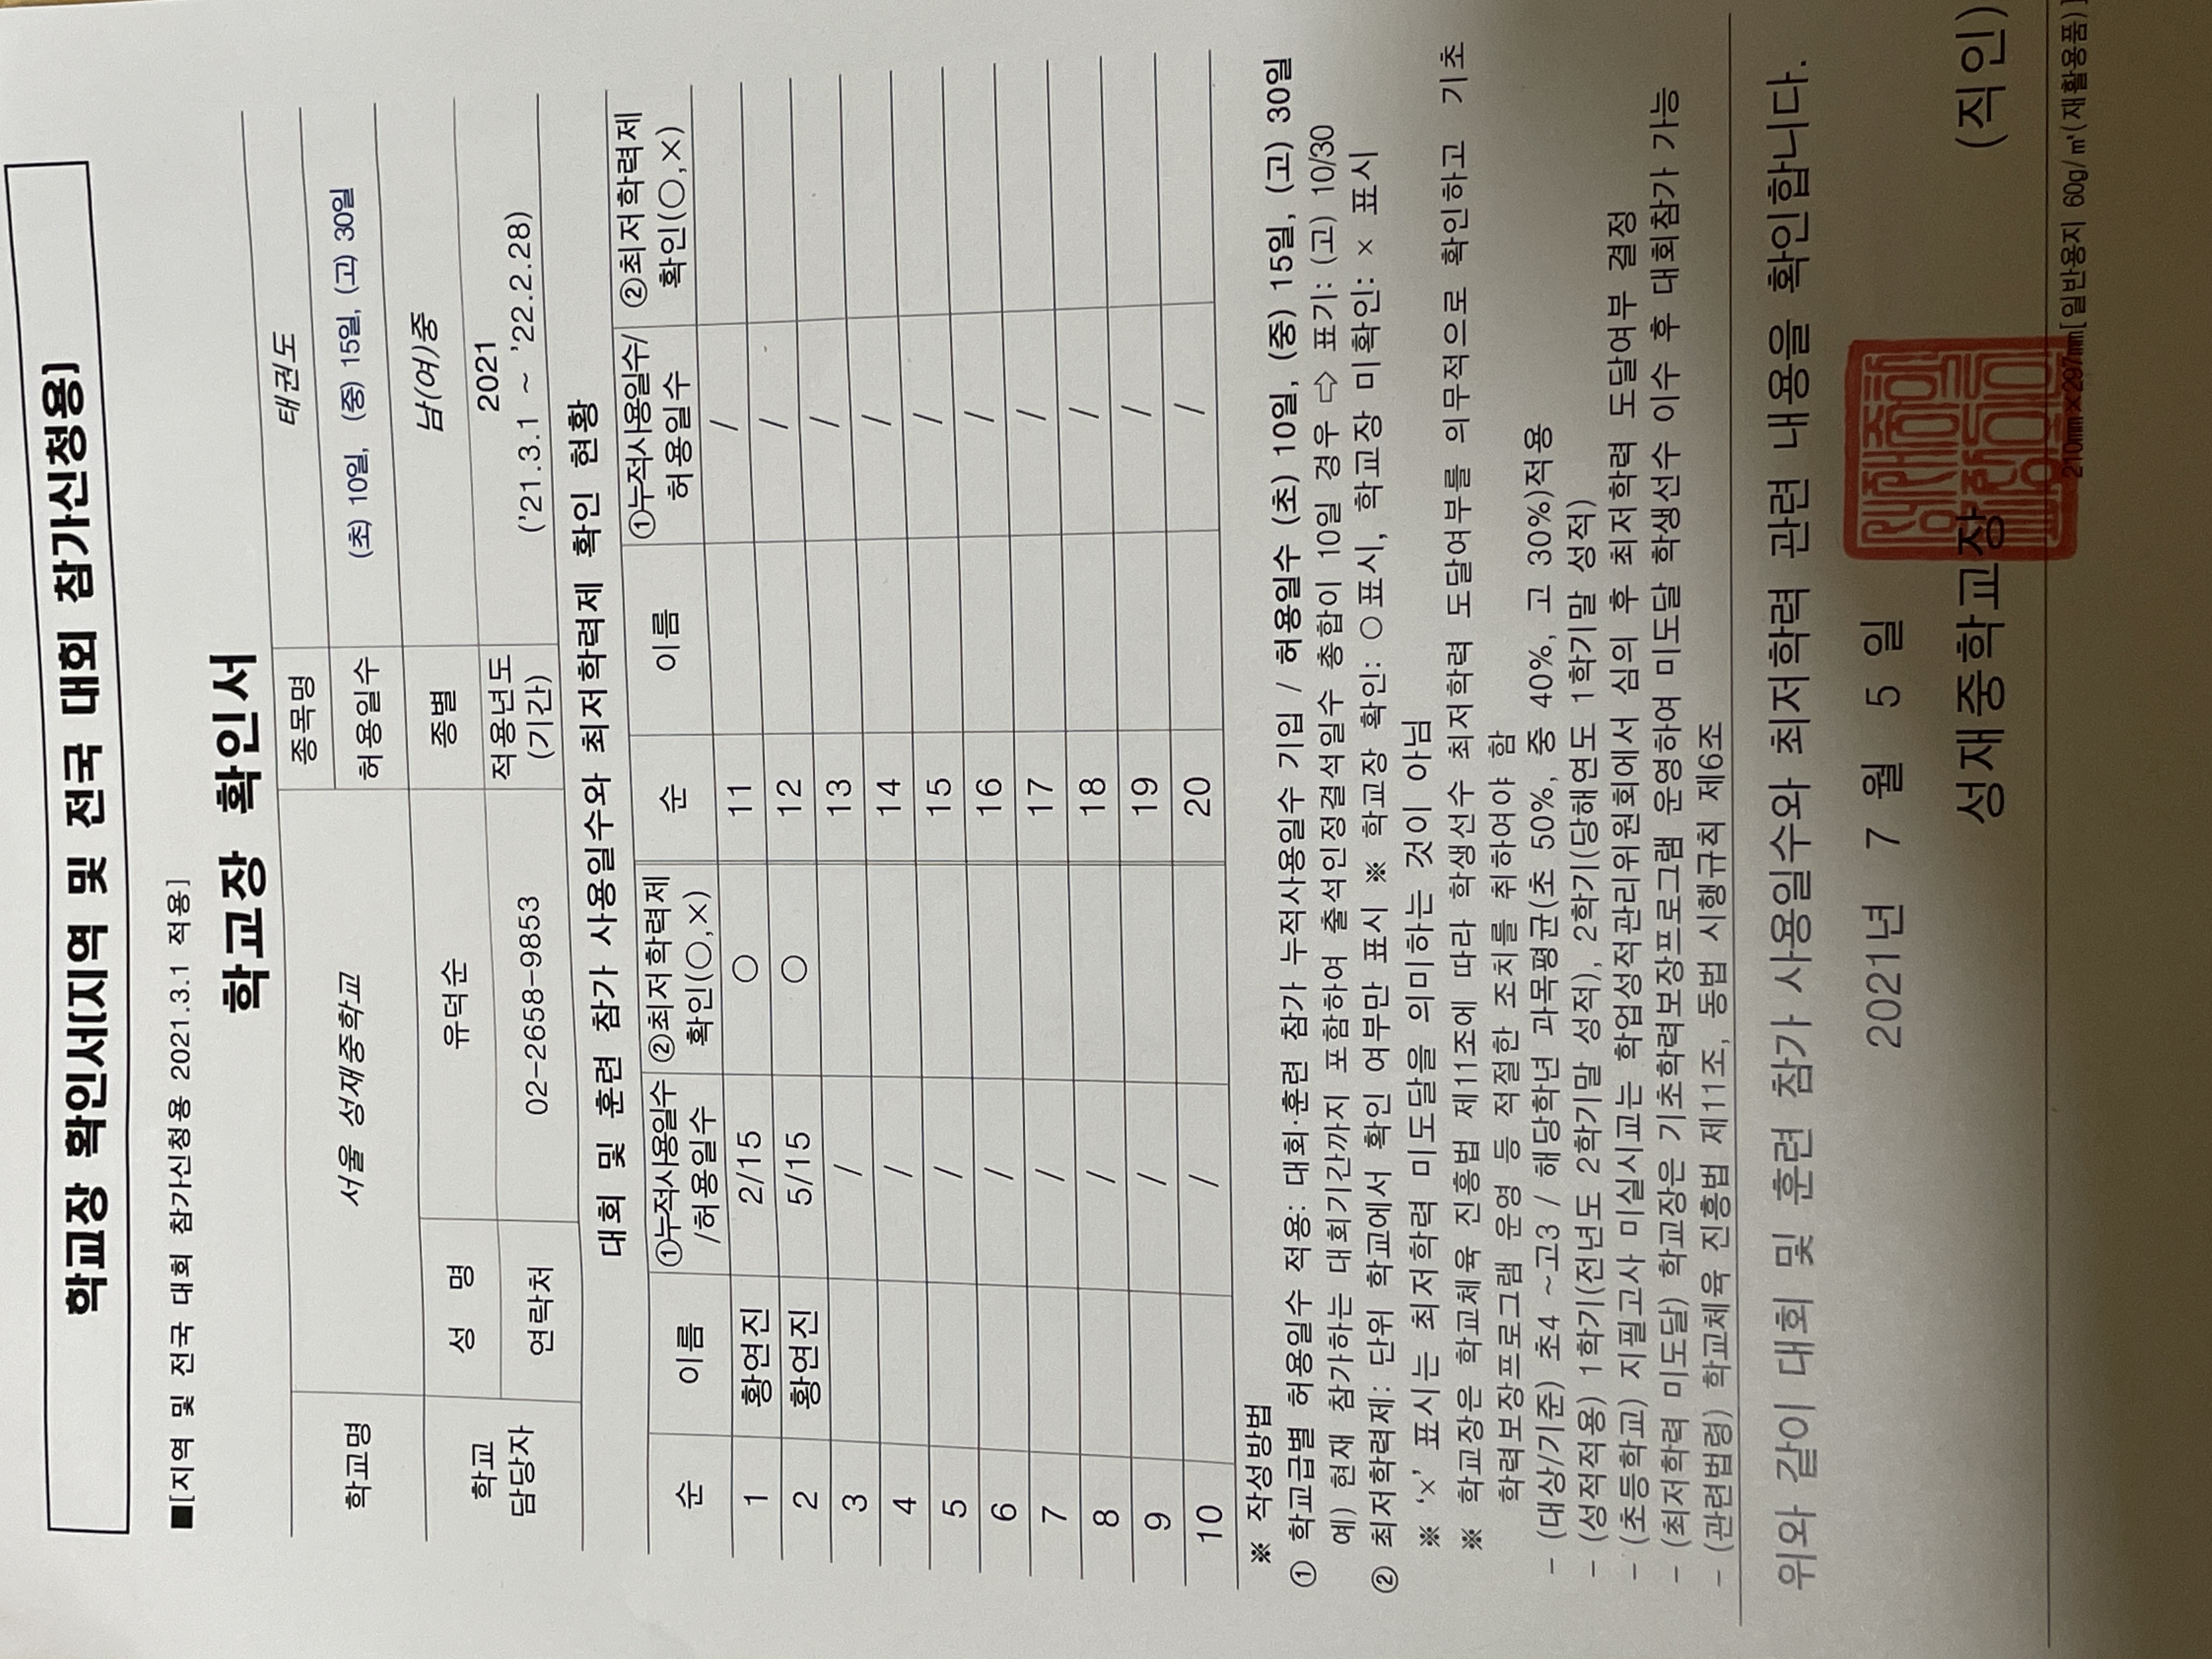 학교장 확인서(지역 및 전국 대회 참가신청용)
■[지역 및 전국 대회 참가신청용 2021.3.1 적용]
학교장 확인서
학교명 서울 성재중학교 종목명 태권도
허용일수 (초) 10일, (중) 15일, (고) 30일
학교 담당자 성 명 유덕순 종별 남(여)중
연락처 02-2658-9853 적용년도 (기간) 2021
('21.3.1 ~ '22.2.28)
대회 및 훈련 참가 사용일수와 최저학력제 확인 현황
순 이름 ①누적사용일수 /허용일수 ②최저학력제 확인(○,×) 순 이름 ①누적사용일수/ 허용일수 ②최저학력제 확인(○,×)
1 황연진 2/15 ○ 11 /
2 황연진 5/15 ○ 12 /
3 / 13 /
4 / 14 /
5 / 15 /
6 / 16 /
7 / 17 /
8 / 18 /
9 / 19 /
10 / 20 /
※ 작성방법
① 학교급별 허용일수 적용: 대회·훈련 참가 누적사용일수 기입 / 허용일수 (초) 10일, (중) 15일, (고) 30일
예) 현재 참가하는 대회기간까지 포함하여 출석인정결석일수 총합이 10일 경우 ⇨ 표기: (고) 10/30
② 최저학력제: 단위 학교에서 확인 여부만 표시 ※ 학교장 확인: ○표시, 학교장 미확인: × 표시
※ '×' 표시는 최저학력 미도달을 의미하는 것이 아님
※ 학교장은 학교체육 진흥법 제11조에 따라 학생선수 최저학력 도달여부를 의무적으로 확인하고 기초
학력보장프로그램 운영 등 적절한 조치를 취하여야 함
- (대상/기준) 초4 ~고3 / 해당학년 과목평균(초 50%, 중 40%, 고 30%)적용
- (성적적용) 1학기(전년도 2학기말 성적), 2학기(당해연도 1학기말 성적)
- (초등학교) 지필고사 미실시교는 학업성적관리위원회에서 심의 후 최저학력 도달여부 결정
- (최저학력 미도달) 학교장은 기초학력보장프로그램 운영하여 미도달 학생선수 이수 후 대회참가 가능
- (관련법령) 학교체육 진흥법 제11조, 동법 시행규칙 제6조
위와 같이 대회 및 훈련 참가 사용일수와 최저학력 관련 내용을 확인합니다.
2021년 7 월 5 일
성재중학교장 (직인)
210㎜×297㎜[일반용지 60g/㎡(재활용품)]